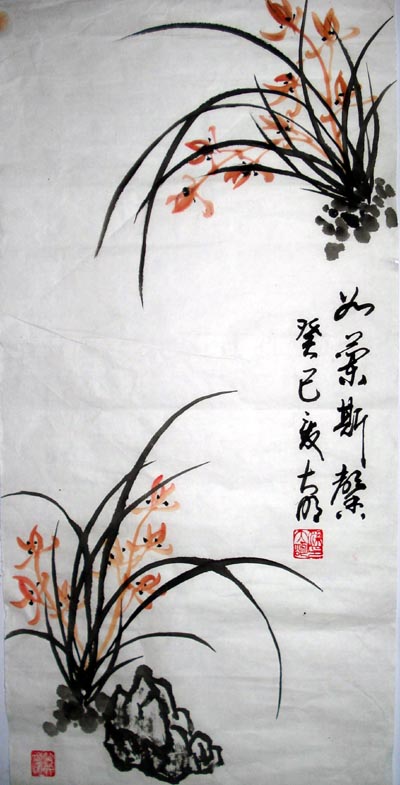 如蘭斯馨
癸巳夏大明